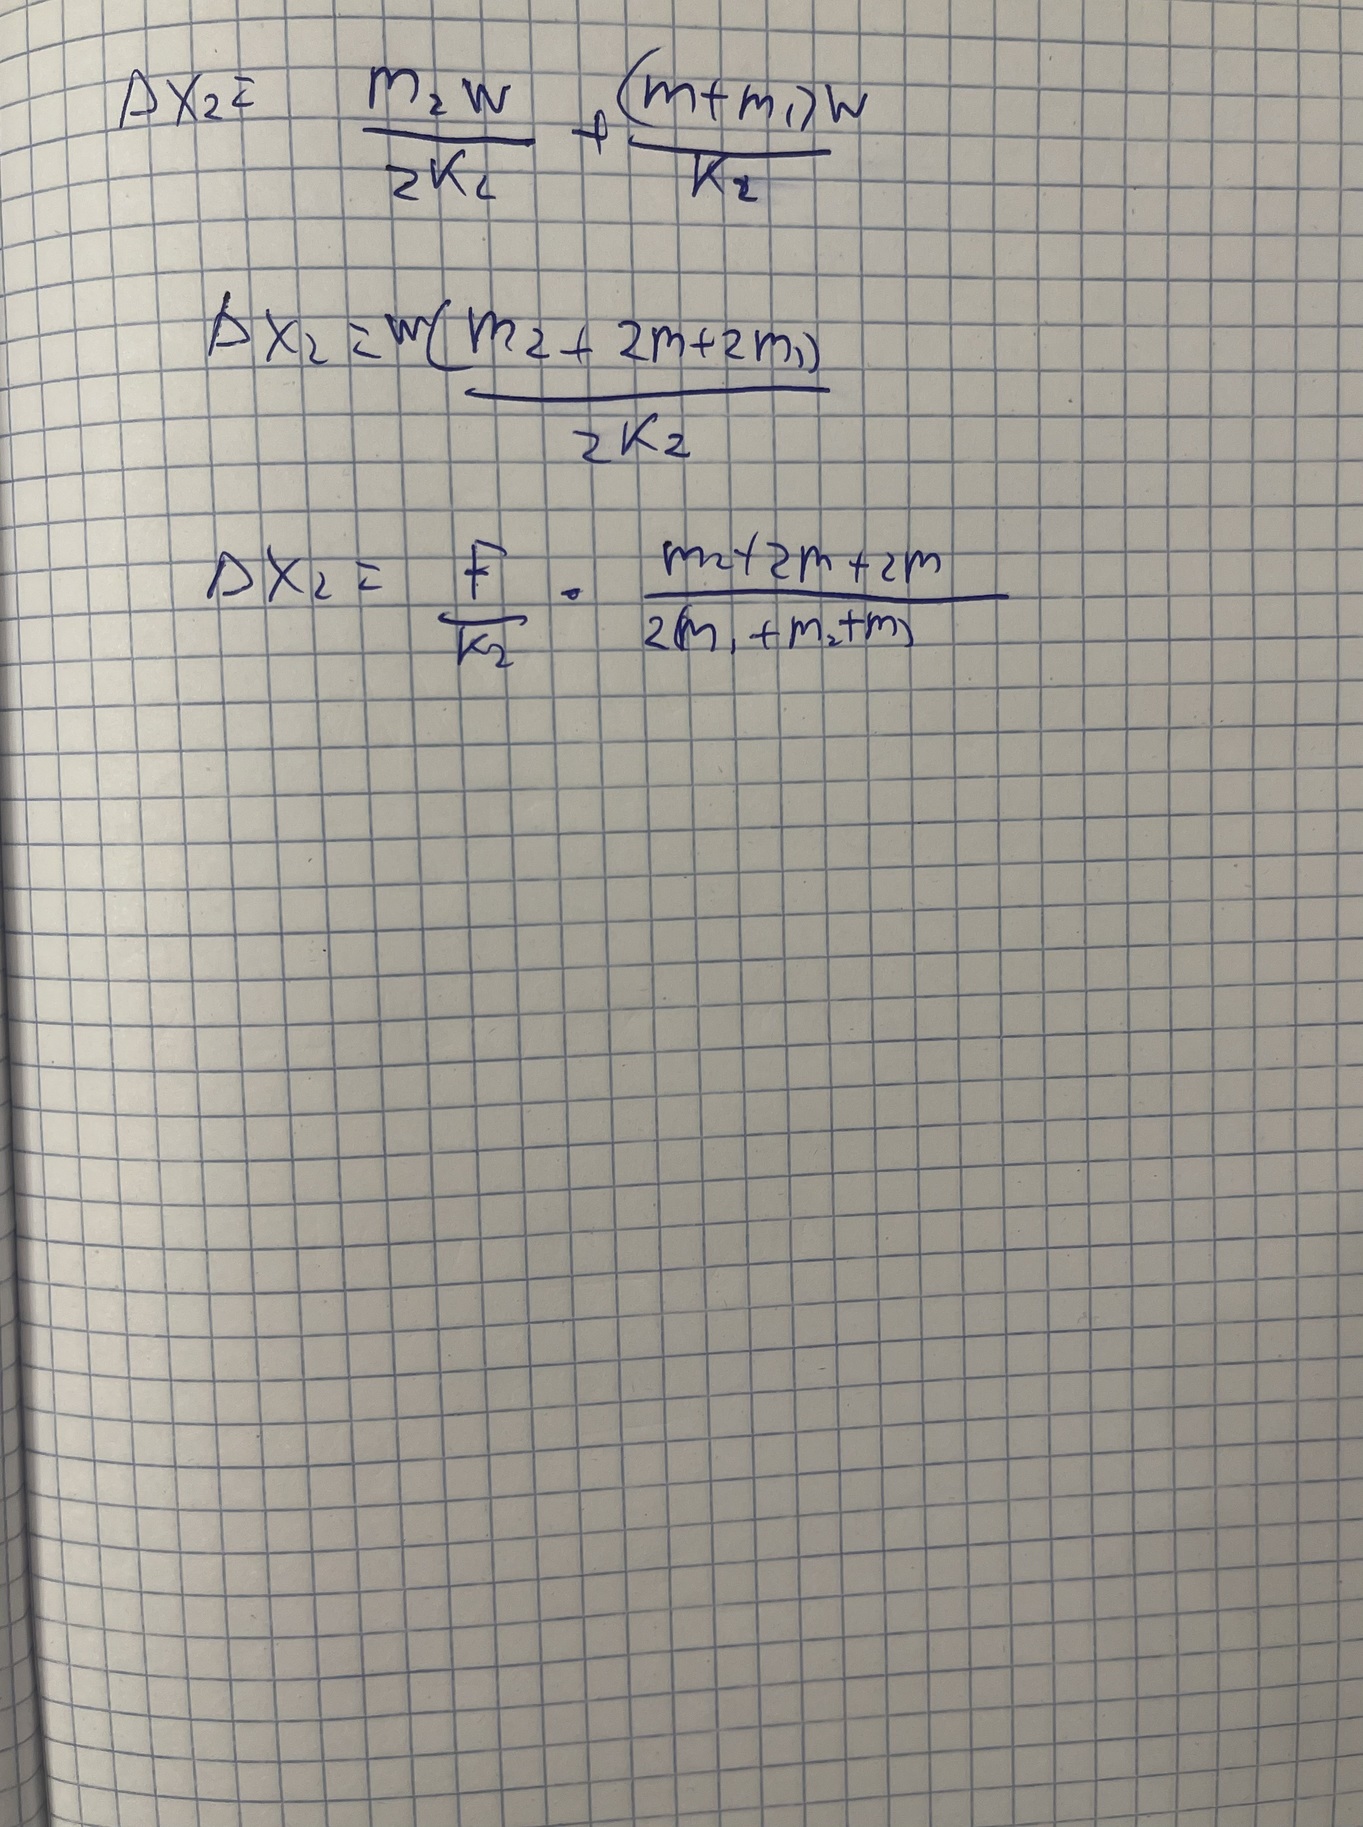 Δx₂ = m₂w/2K₂ + (m+m₁)w/K₂
Δx₂ = w(m₂ + 2m+2m₁)/2K₂
Δx₂ = F/K₂ · m₂+2m+2m/2(m₁+m₂+m)